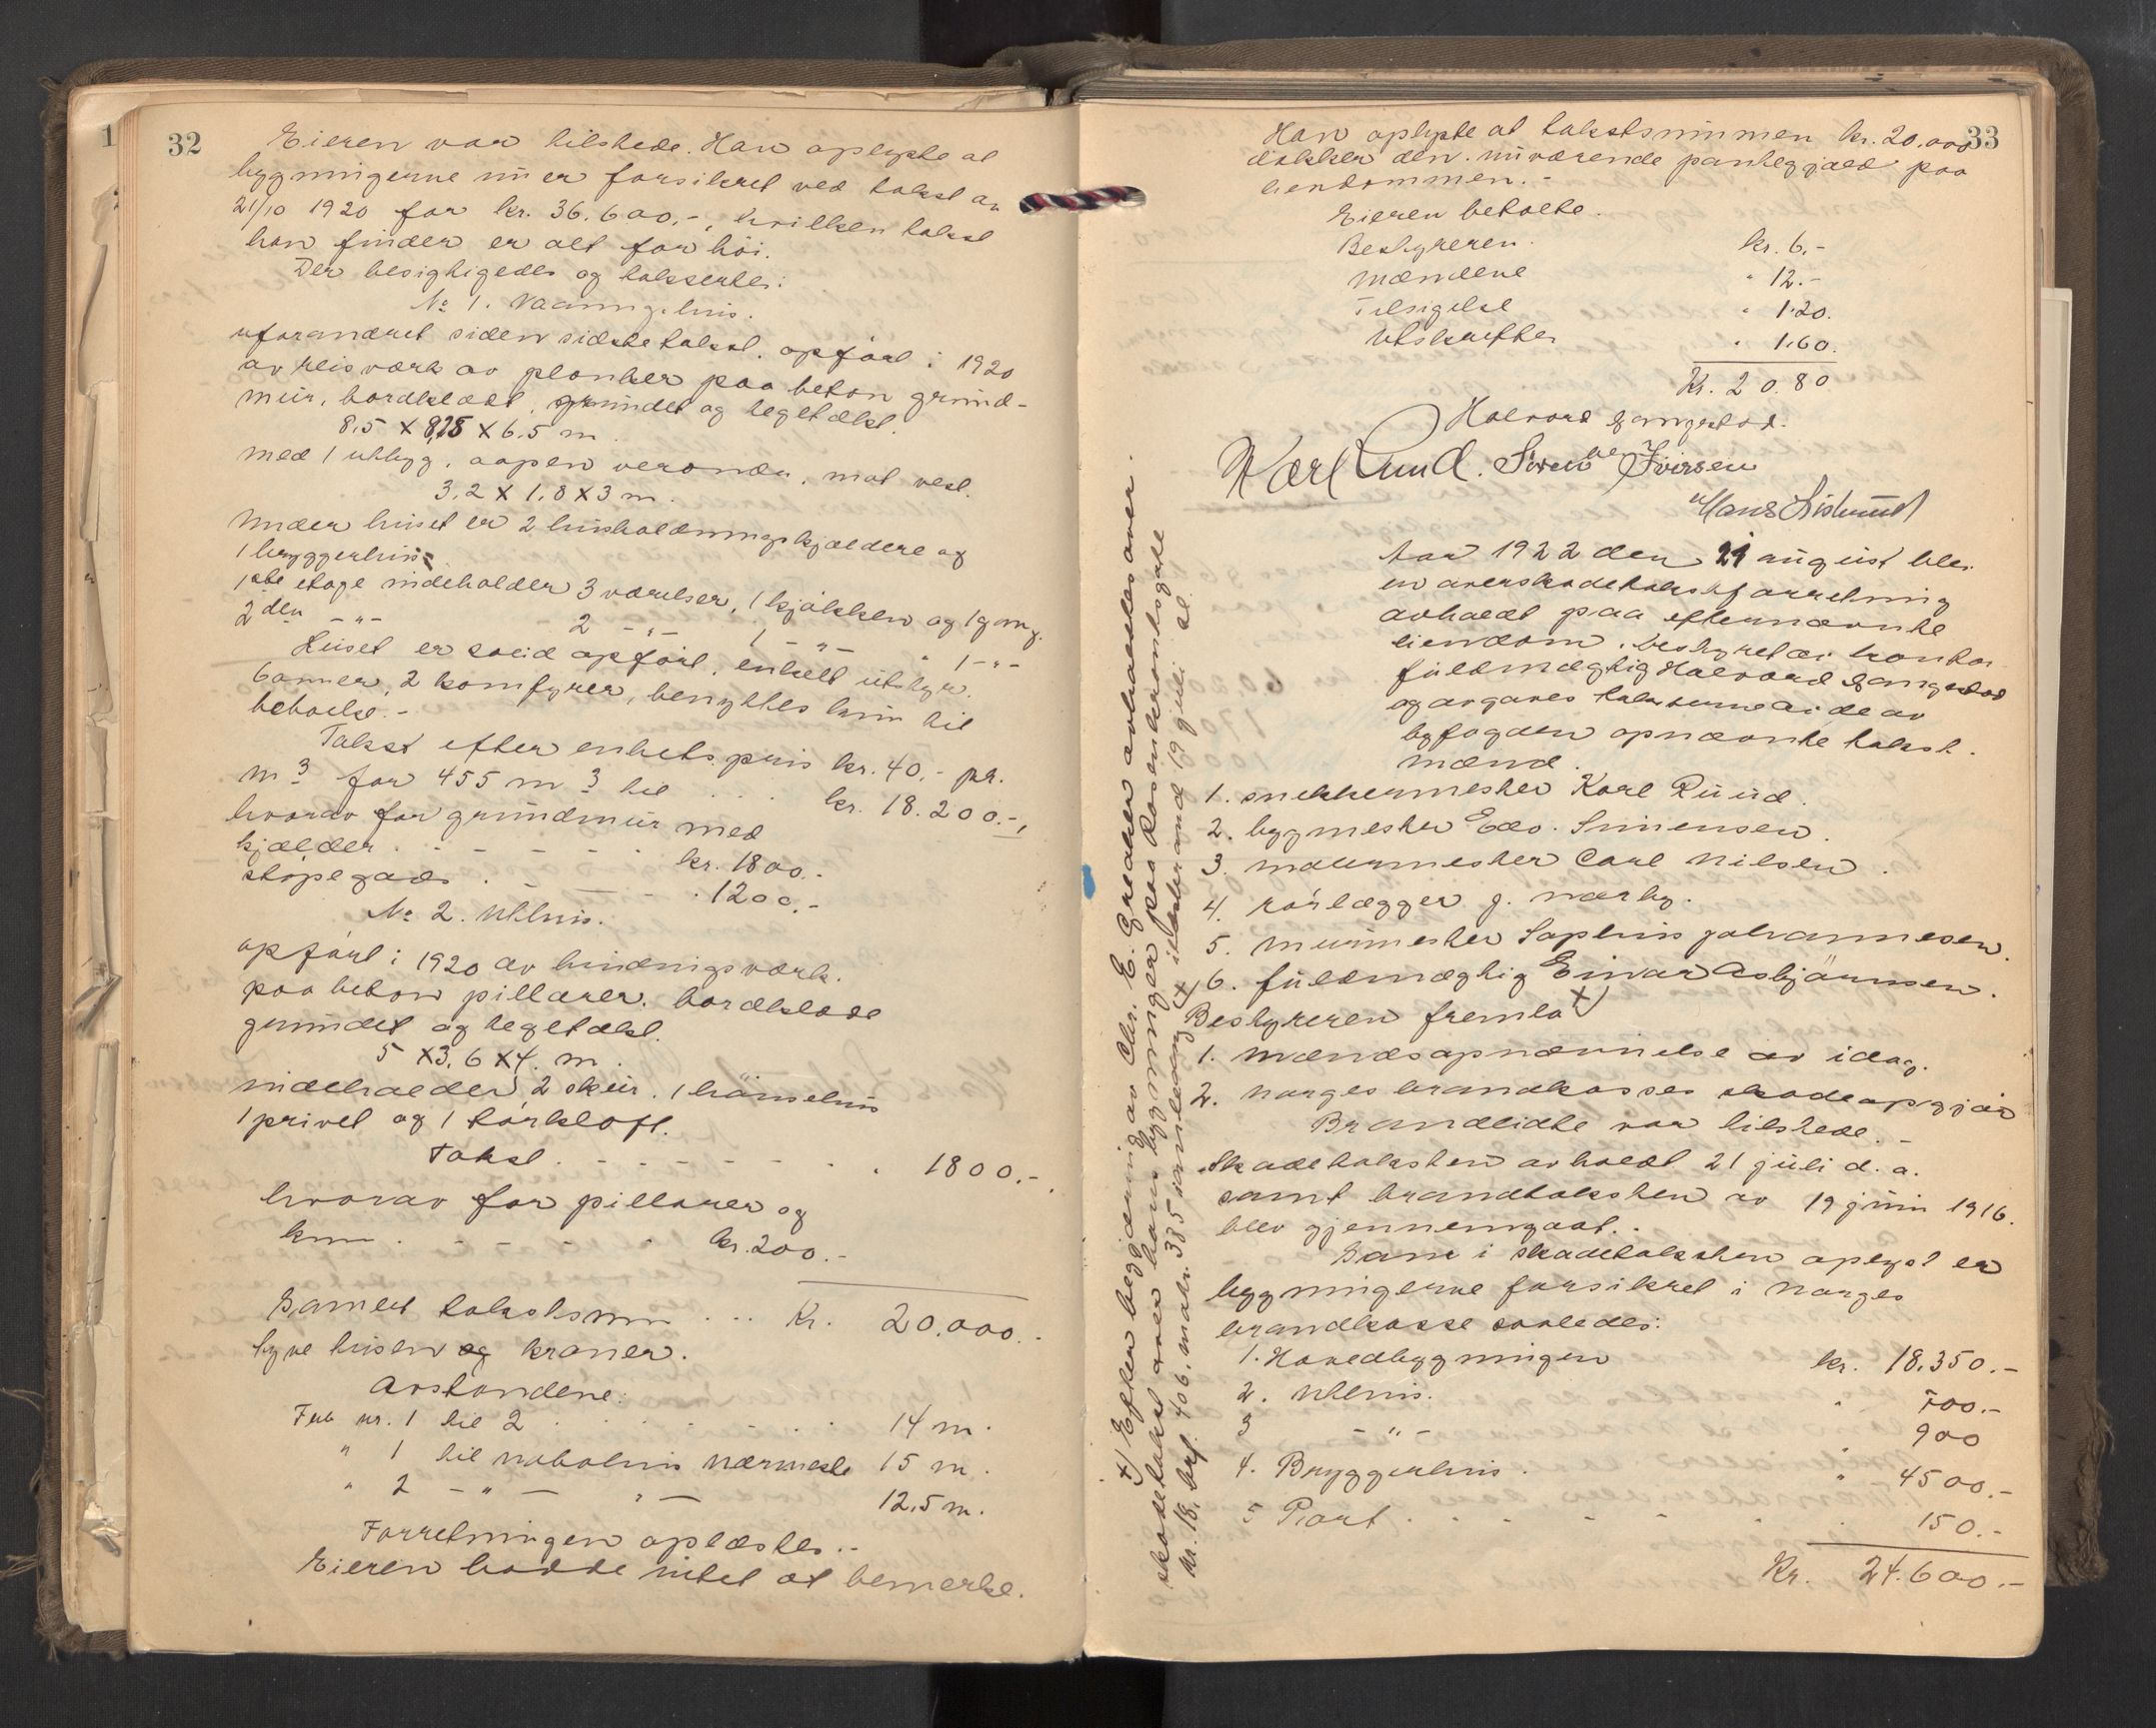 32
Eieren var tilstede. Han oplyste at
bygningerne nu er forsikret ved takst av
21/10 1920 for kr. 36.600,-, hvilken takst
han finder er alt for høi.
Der besigtigedes og taksertes:
No 1. Vaaningshus.
uforandret siden sidste takst. opført i 1920
av reisverk av planker paa beton grund-
mur, bordklædt, grundet og tegltækt.
8,5 X 8,25 X 6.5 m.
med 1 utbygg, aapen veranda, mot vest.
3,2 X 1,8 X 3 m.
Under huset er 2 husholdningskjældere og
1 bryggerhus.
1ste etage indeholder 3 værelser, 1 kjøkken og 1 gang.
2den -"- 2 -"- 1 -"- " 1 -"-
Huset er solid opført, enkelt utstyr.
6 ovner, 2 komfyrer, benyttes kun til
beboelse.-
Takst efter enhetspris kr. 40.- pr.
m3 for 455 m3 til ... kr. 18.200.-,
hvorav for grundmur med
kjælder . - - - - kr. 1800.-
støpegods . - - - " 1200.-
No 2. Uthus.
opført i 1920 av bindingsverk.
paa beton pillarer. bordklædt
grundet og tegltækt.
5 X 3,6 X 4. m.
indeholder 2 skur. 1 hønsehus
1 privet og 1 tørkloft.
Takst . - - - - - - . . 1800.-
hvorav for pillarer og
krur . - - - - kr. 200.-
Samlet takstsum ... Kr. 20.000.-
tyve tusen og kroner.
Avstandene:
Fra nr. 1 til 2 . . . . . . 14 m.
" 1 til nabohus nærmeste 15 m.
" 2 - " - " - 12,5 m.
Forretningen oplæstes.-
Eieren hadde intet at bemerke.
33
Han oplyste at takstsummen kr. 20.000
dækker den nuværende pantegjæld paa
eiendommen.-
Eieren betalte.
Bestyreren. kr. 6.-
Mændene " 12.-
Tilsigelse " 1.20.
Utskrifter " 1.60.
Kr. 20.80
Halvord Gangestad.
Karl Ruud. Søren Iversen
Hans
Aar 1922 den 21 august blev
en overskadetakstforretning
avholdt paa efternævnte
eiendom. bestyret av kontor
fuldmægtig Halvord Gangestad
og avgaves taksterne av de av
byfogden opnævnte takst-
mænd.
1. snekkermester Karl Ruud.
2. bygmester Edv. Simensen.
3. malermester Carl Nilsen.
4. rørlægger J. Nærby.
5. murmester Sophus Johannesen.
6. fuldmægtig Einar Asbjørnsen.
Bestyreren fremla X)
1. Mændsopnævnelse av idag.
2. Norges brandkasses skadeopgjør
Brandlidte var tilstede.-
Skadetaksten avholdt 21 juli d. a.
samt brandtaksten av 19 juni 1916.
blev gjennemgaat.
Som i skadetaksten oplyst er
bygningerne forsikret i Norges
brandkasse saaledes:
1. Hovedbygningen kr. 18.350.-
2. Uthus. " 700.-
3 - " - 900
4. Bryggerhus. " 4500.-
5 Port . - - - - . 150.-
Kr. 24.600.-
X) Efter begjæring av Chr. E. Gredder avholdtes over
skadetakst over hans bygninger paa Rosenkrantzgate
nr. 18, brf. 406. matr. 385 19 juli sl.